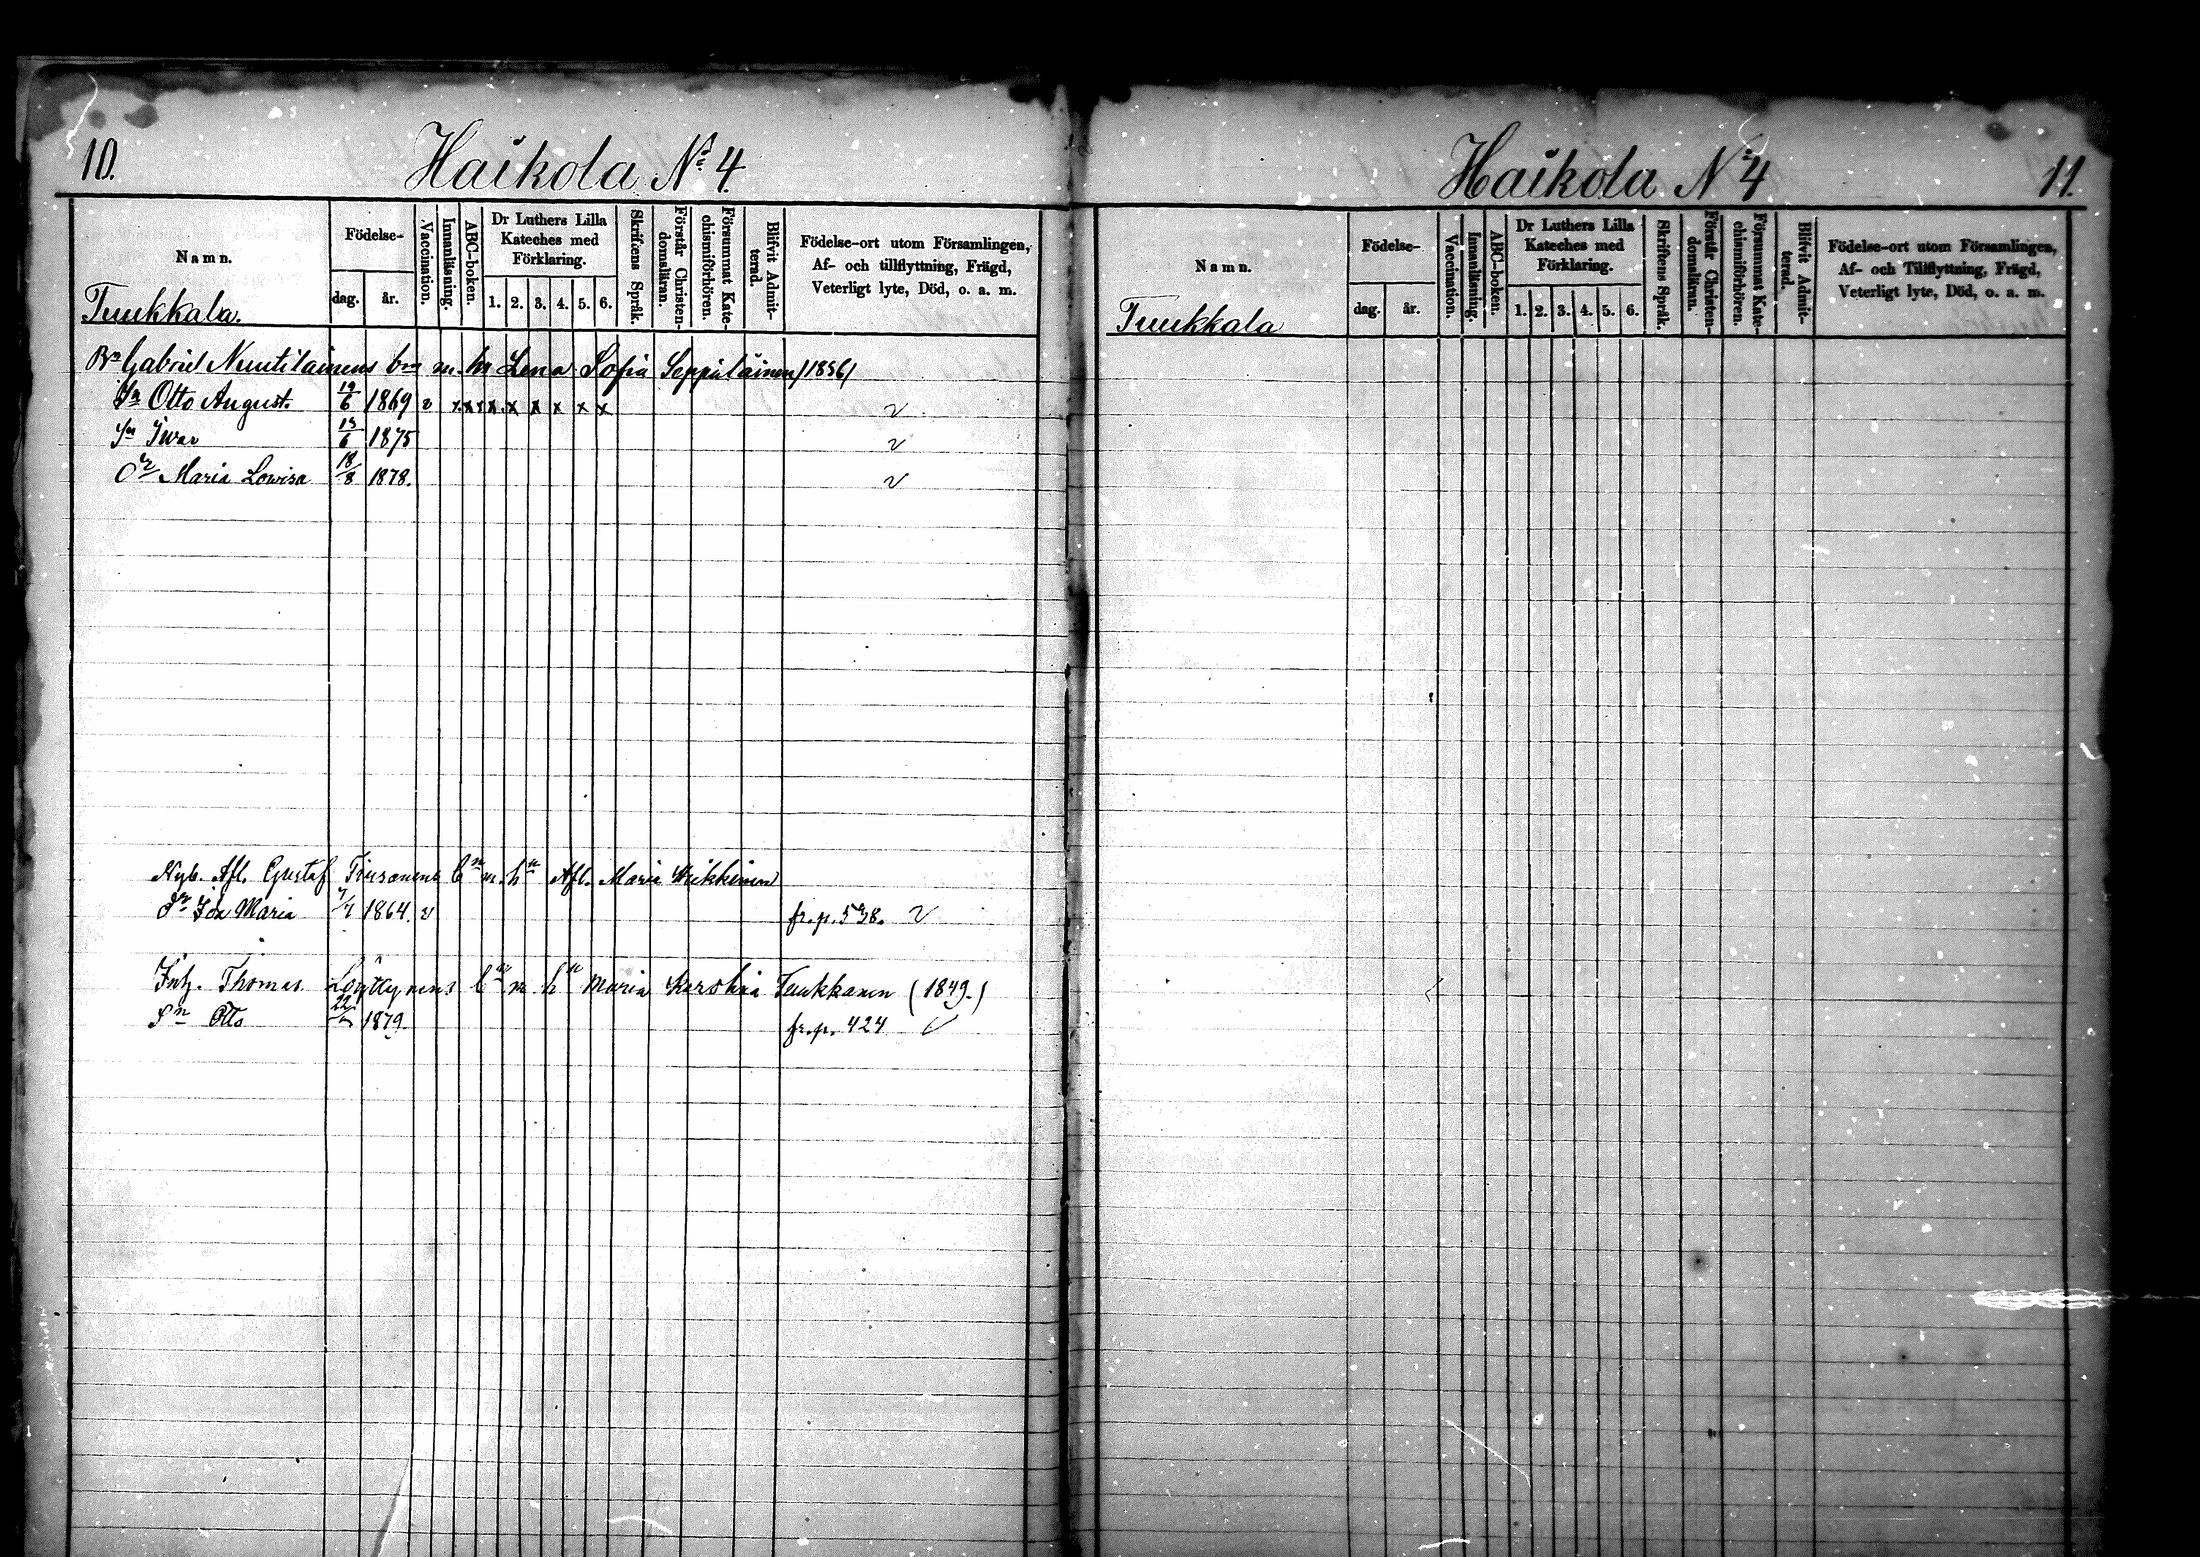 10.
Haikola No 4.
Namn.
Födelse-
dag.
år.
Vaccination.
Innanläsning.
ABC-boken.
Dr Luthers Lilla
Kateches med
Förklaring.
1. 2. 3. 4. 5. 6.
Skriftens Språk.
Förstår Christen-
domsläran.
Försummat Kate-
chismiförhören.
Blifvit Admit-
terad.
Födelse-ort utom Församlingen,
Af- och tillflyttning, Frägd,
Veterligt lyte, Död, o. a. m.
Tuukkala.
Gabriel Nuutilainens bn m. hu Lena Sofia Seppäläinen /1856/
Sn Otto August. 19/6 1869 v x x x x x x x x v
Sn Iwar 13/6 1875 v
Dr Maria Lowisa 18/8 1878. v
Afl. Gustaf bn m. hu Afl. Maria
Dr Ida Maria 1864. v fr. p. 538. v
Inh. Thomas Löyttynens bn m hu Maria Tuukkanen (1849.)
Sn Otto 1879. fr. p. 424 v
Haikola No 4
11.
Namn.
Födelse-
dag.
år.
Vaccination.
Innanläsning.
ABC-boken.
Dr Luthers Lilla
Kateches med
Förklaring.
1. 2. 3. 4. 5. 6.
Skriftens Språk.
Förstår Christen-
domsläran.
Försummat Kate-
chismiförhören.
Blifvit Admit-
terad.
Födelse-ort utom Församlingen,
Af- och Tillflyttning, Frägd,
Veterligt lyte, Död, o. a. m.
Tuukkala